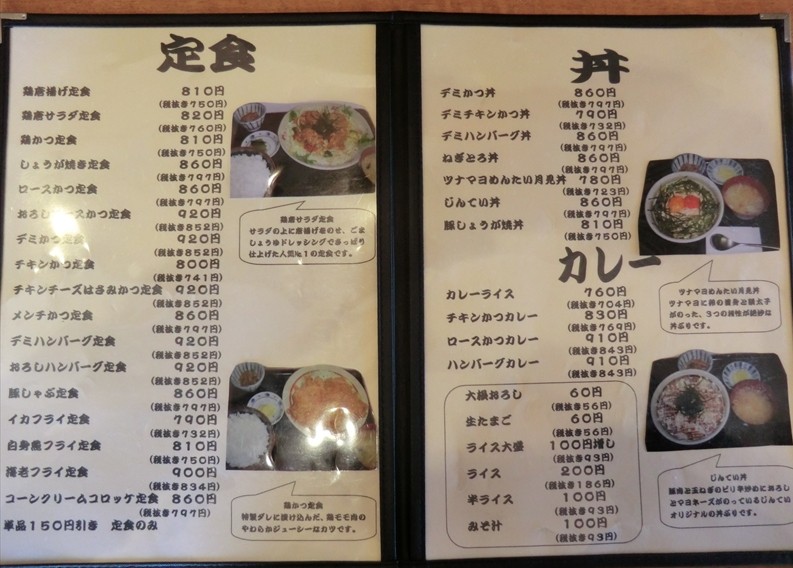 定食
鶏唐揚げ定食 810円
(税抜き750円)
鶏唐サラダ定食 820円
(税抜き760円)
鶏かつ定食 810円
(税抜き750円)
しょうが焼き定食 860円
(税抜き797円)
ロースかつ定食 860円
(税抜き797円)
おろしロースかつ定食 920円
(税抜き852円)
デミかつ定食 920円
(税抜き852円)
チキンかつ定食 800円
(税抜き741円)
チキンチーズはさみかつ定食 920円
(税抜き852円)
メンチかつ定食 860円
(税抜き797円)
デミハンバーグ定食 920円
(税抜き852円)
おろしハンバーグ定食 920円
(税抜き852円)
豚しゃぶ定食 860円
(税抜き797円)
イカフライ定食 790円
(税抜き732円)
白身魚フライ定食 810円
(税抜き750円)
海老フライ定食 900円
(税抜き834円)
コーンクリームコロッケ定食 860円
(税抜き797円)
単品150円引き 定食のみ
鶏唐サラダ定食
サラダの上に唐揚げをのせ、ごま
しょうゆドレッシングでさっぱり
仕上げた人気№1の定食です。
鶏かつ定食
特製ダレに漬け込んだ、鶏モモ肉の
やわらかジューシーなカツです。
丼
デミかつ丼 860円
(税抜き797円)
デミチキンかつ丼 790円
(税抜き732円)
デミハンバーグ丼 860円
(税抜き797円)
ねぎとろ丼 860円
(税抜き797円)
ツナマヨめんたい月見丼 780円
(税抜き723円)
じんてい丼 860円
(税抜き797円)
豚しょうが焼丼 810円
(税抜き750円)
ツナマヨめんたい月見丼
ツナマヨに卵の黄身と明太子
がのった、3つの相性が絶妙な
丼ぶりです。
カレー
カレーライス 760円
(税抜き704円)
チキンかつカレー 830円
(税抜き769円)
ロースかつカレー 910円
(税抜き843円)
ハンバーグカレー 910円
(税抜き843円)
大根おろし 60円
(税抜き56円)
生たまご 60円
(税抜き56円)
ライス大盛 100円増し
(税抜き93円)
ライス 200円
(税抜き186円)
半ライス 100円
(税抜き93円)
みそ汁 100円
(税抜き93円)
じんてい丼
豚肉と玉ねぎのピリ辛炒めにおろし
とマヨネーズがのっているじんてい
オリジナルの丼ぶりです。